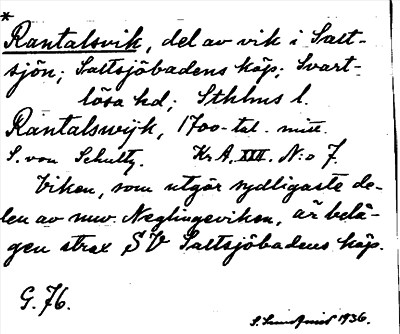 *
Rantalsvik, del av vik i Salt-
sjön; Saltsjöbadens köp; Svart-
lösa hd, Sthlms l.
Rantalswijk, 1700-tal.
S. von Schultz. KrA, XXX. N:o 7.
Viken, som utgör sydligaste de-
len av nuv. Neglingeviken, är belä-
gen strax SV Saltsjöbadens köp.
G. 76.
1936.